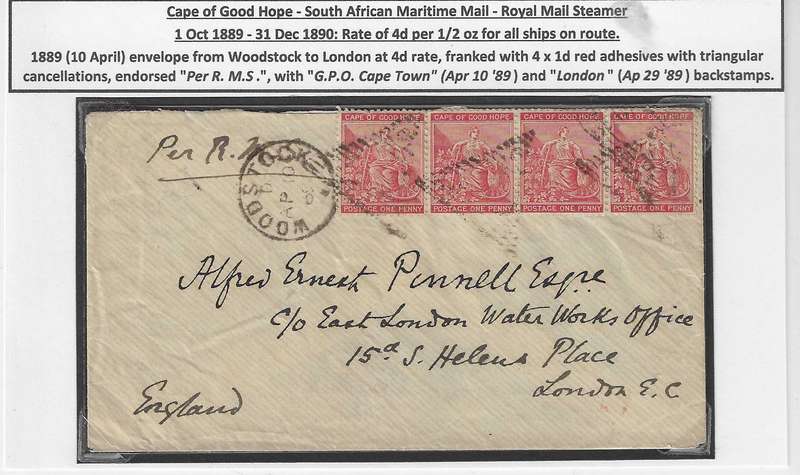 Cape of Good Hope - South African Maritime Mail - Royal Mail Steamer
1 Oct 1889 - 31 Dec 1890: Rate of 4d per 1/2 oz for all ships on route.
1889 (10 April) envelope from Woodstock to London at 4d rate, franked with 4 x 1d red adhesives with triangular
cancellations, endorsed "Per R. M.S .", with "G.P.O. Cape Town" (Apr 10 '89 ) and "London " (Ap 29 '89 ) backstamps.
CAPE OF GOOD HOPE CAPE OF GOOD HOPE CAPE OF GOOD HOPE CAPE OF GOOD HOPE
Per R.M
WOODSTOCK
AP 10
POSTAGE ONE PENNY POSTAGE ONE PENNY POSTAGE ONE PENNY POSTAGE ONE PENNY
Alfred Ernest Pinnell Esqre
C/o East London Water Works Office
15a S. Helens Place
London E.C
England